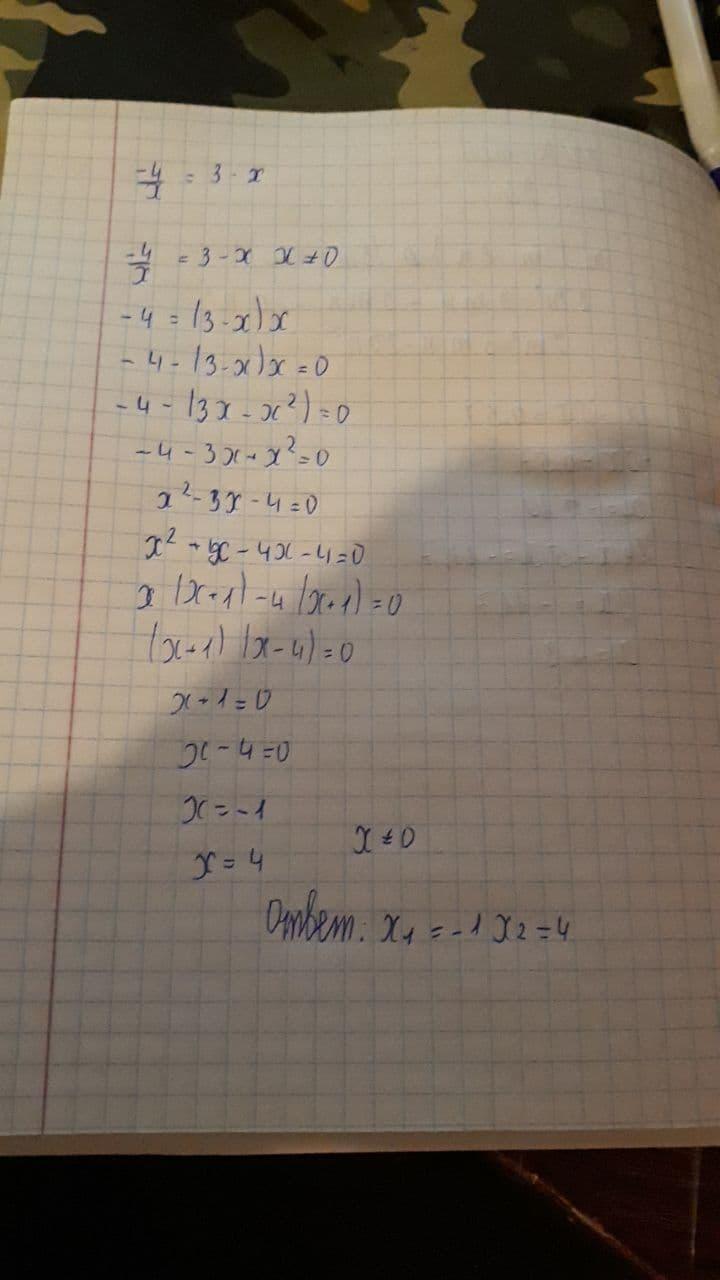 -4/x = 3 - x
-4/x = 3 - x x ≠ 0
-4 = (3-x)x
-4-(3-x)x = 0
-4-(3x-x²)=0
-4-3x+x²=0
x²-3x-4=0
x²+x-4x-4=0
x(x+1)-4(x+1)=0
(x+1)(x-4)=0
x+1=0
x-4=0
x=-1
x≠0
x=4
Ответ: x₁=-1 x₂=4